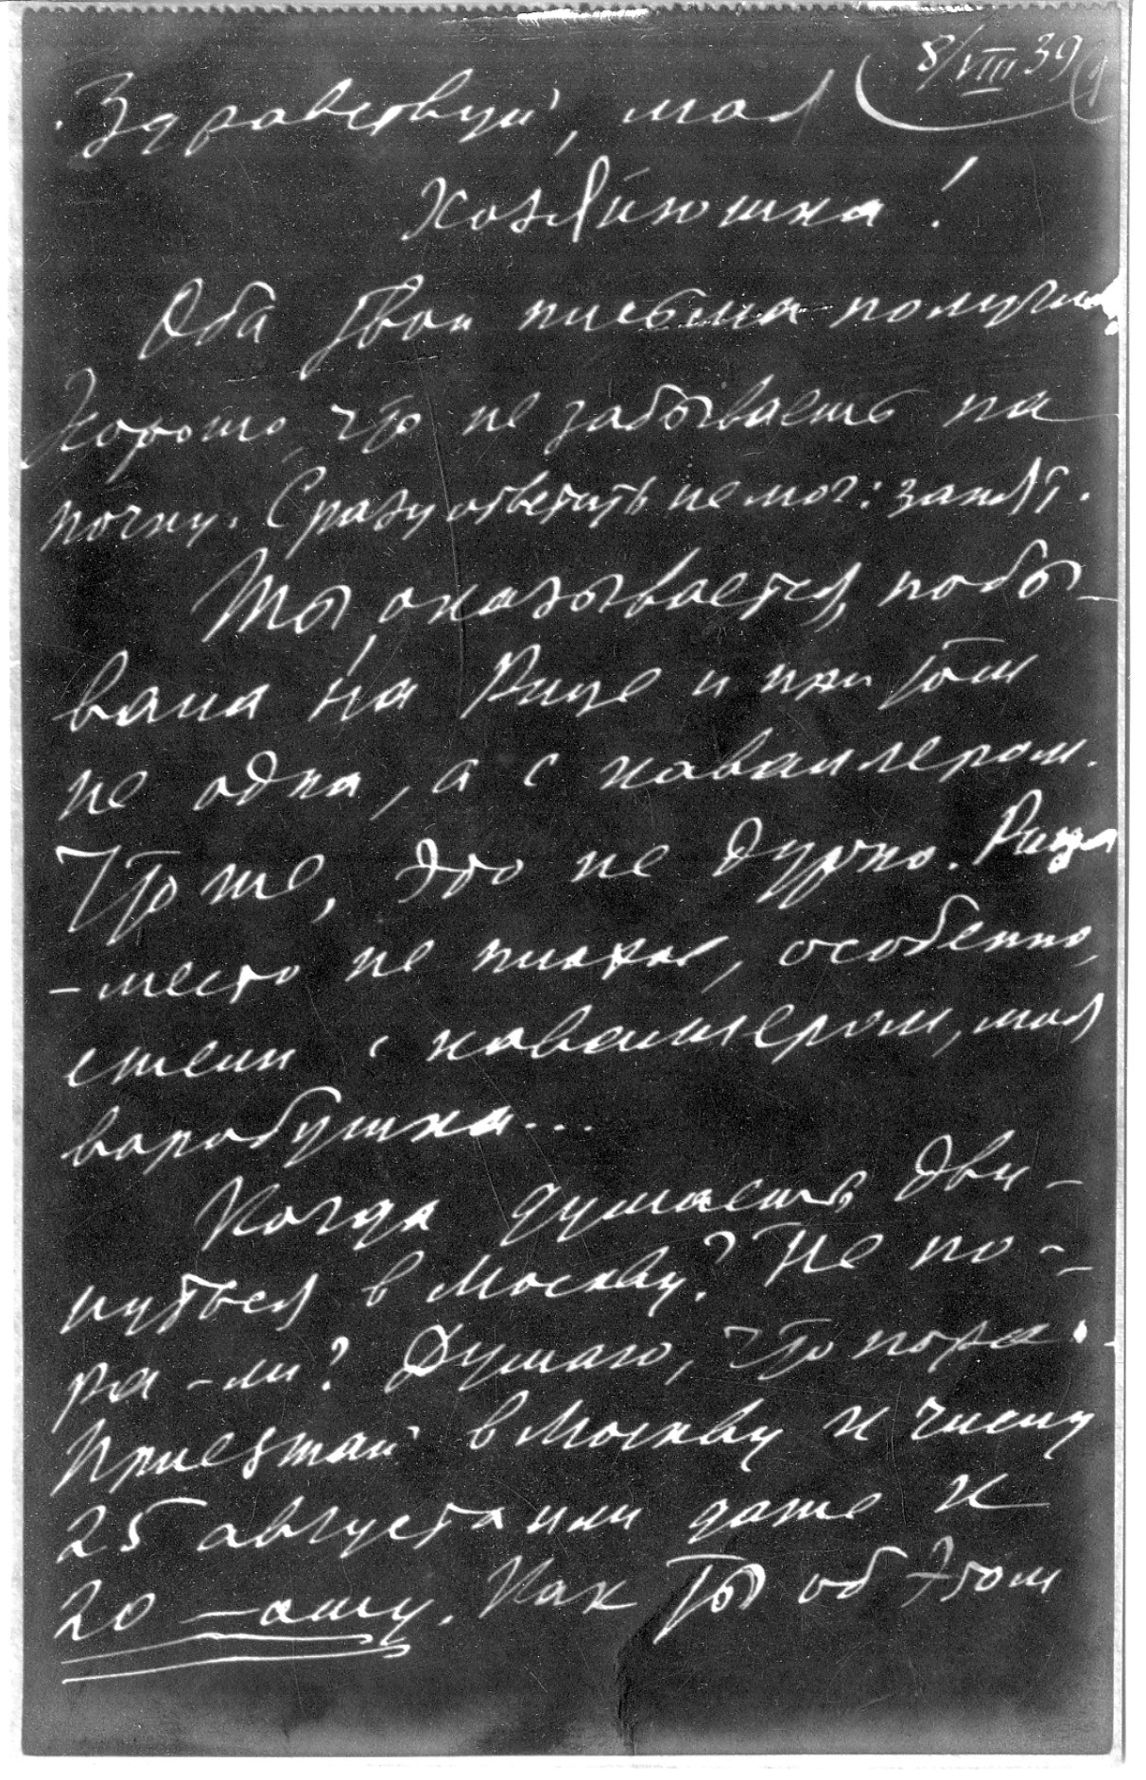 8/VIII 39
Здравствуй, моя
Хозяйюшка!
Оба твои письма получил.
Хорошо, что не забываешь па
почку. Сразу ответить не мог: занят.
Ты, оказывается, побы-
вала на Рице и при том
не одна, а с каваллером.
Что же, это не дурно. Рица
- место не плохое, особенно,
ежели с каваллером, моя
воробушка...
Когда думаешь дви-
нуться в Москву? Не по-
ра-ли? Думаю, что пора.
Приезжай в Москву к числу
25 августа или даже к
20-ому. Как ты об этом